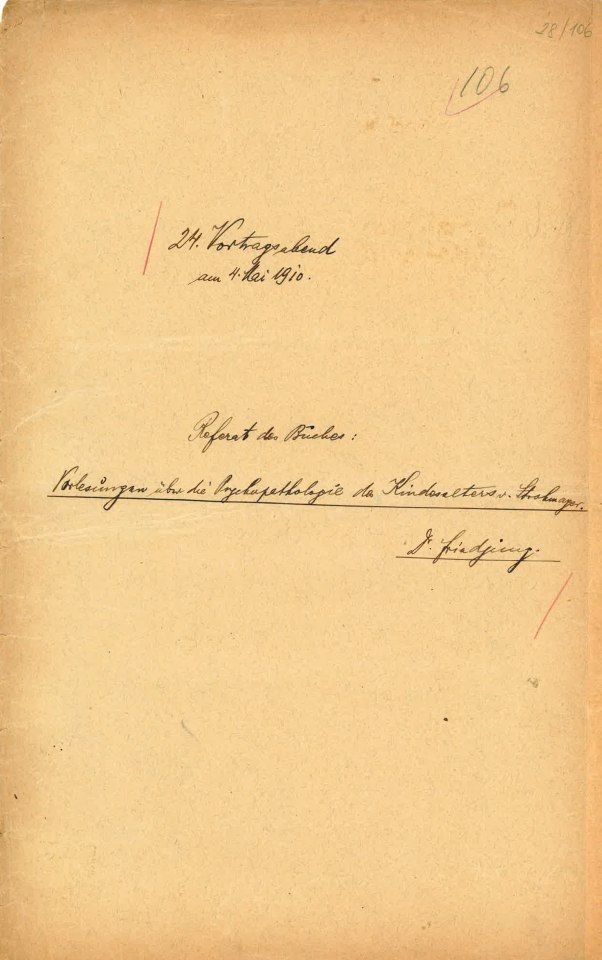 28/106
106
24. Vortragsabend
am 4. Mai 1910.
Referat des Buches:
Vorlesungen über die Psychopathologie des Kindesalters v. Strohmayer.
Dr. Friedjung.